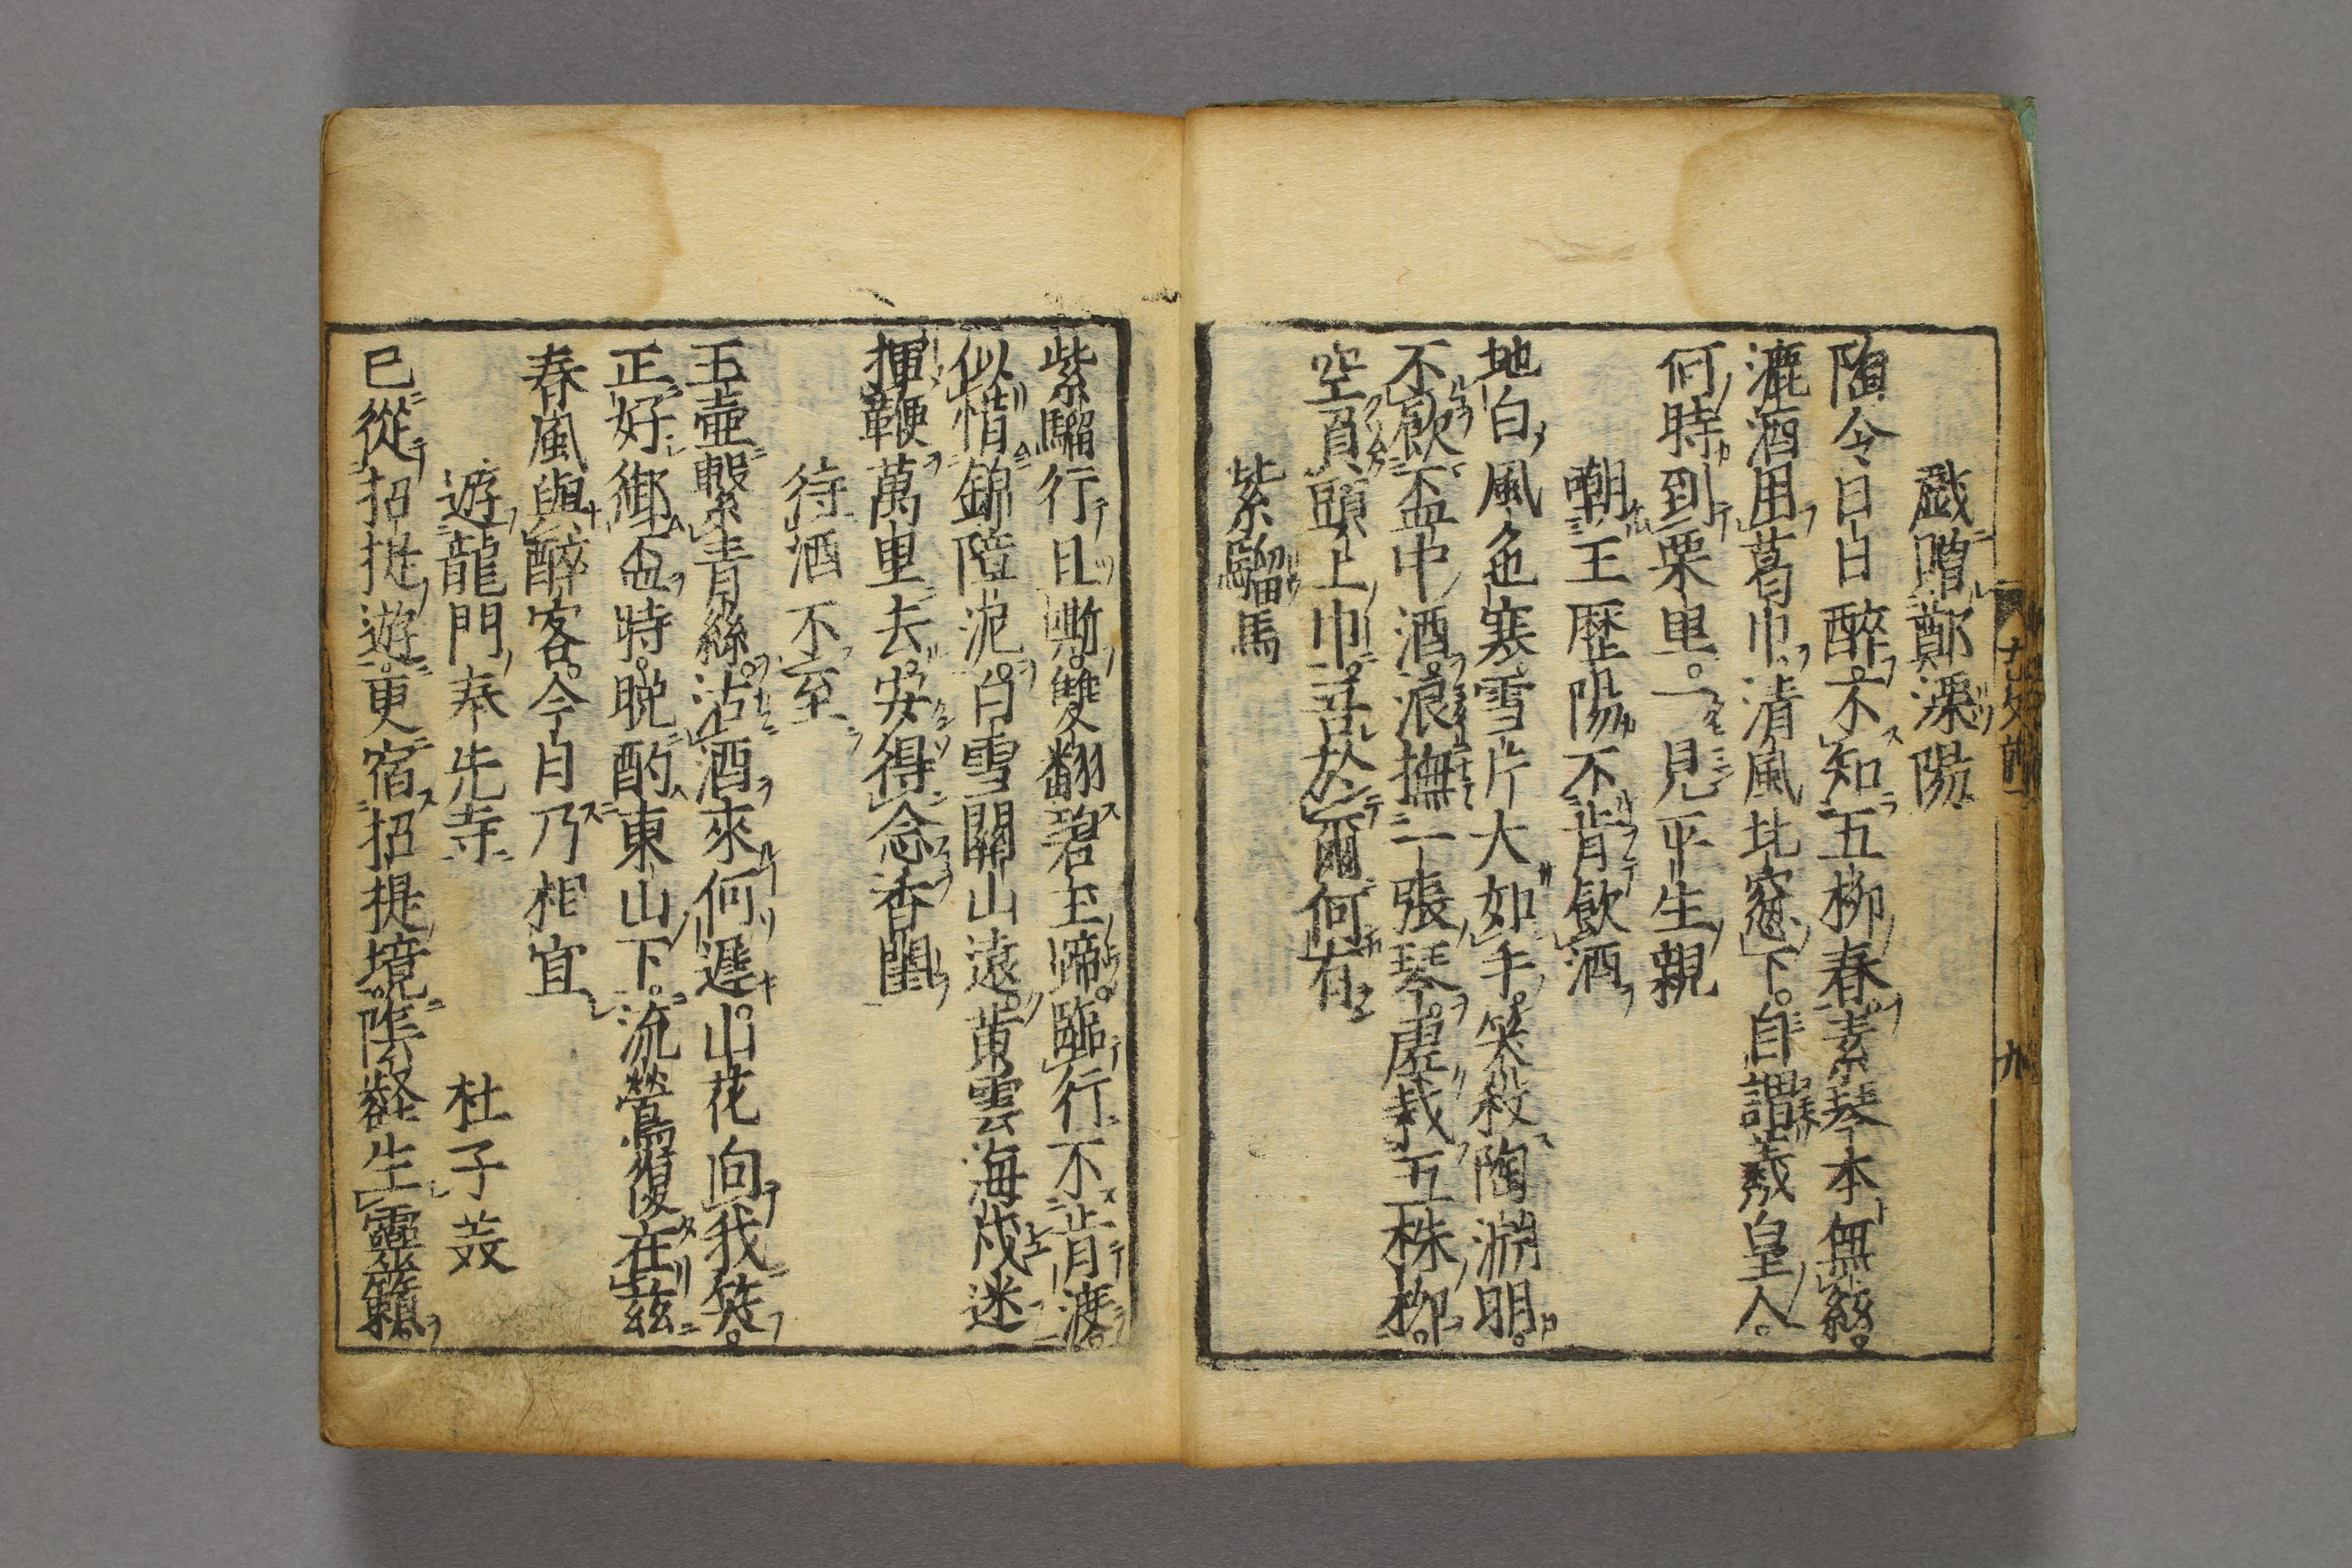 戯贈鄭溧陽
陶令日日醉。不知五柳春。素琴本無絃。
漉酒用葛巾。清風北窓下。自謂羲皇人。
何時到栗里。一見平生親
嘲王歴陽不肯飲酒
地白風色寒。雪片大如手。笑殺陶淵明。
不飲盃中酒。浪撫一張琴。虚栽五株柳。
空負頭上巾。吾於爾何有
紫騮馬
九
紫騮行且嘶。雙翻碧玉蹄。臨行不肯渡。
似惜錦障泥。白雪關山遠。黄雲海戍迷
揮鞭萬里去。安得念香閨
待酒不至
玉壺繫青絲。沽酒來何遲。山花向我笑。
正好銜盃時。晩酌東山下。流鶯復在茲
春風與醉客。今日乃相宜
遊龍門奉先寺 杜子美
已從招提遊。更宿招提境。陰壑生靈籟。